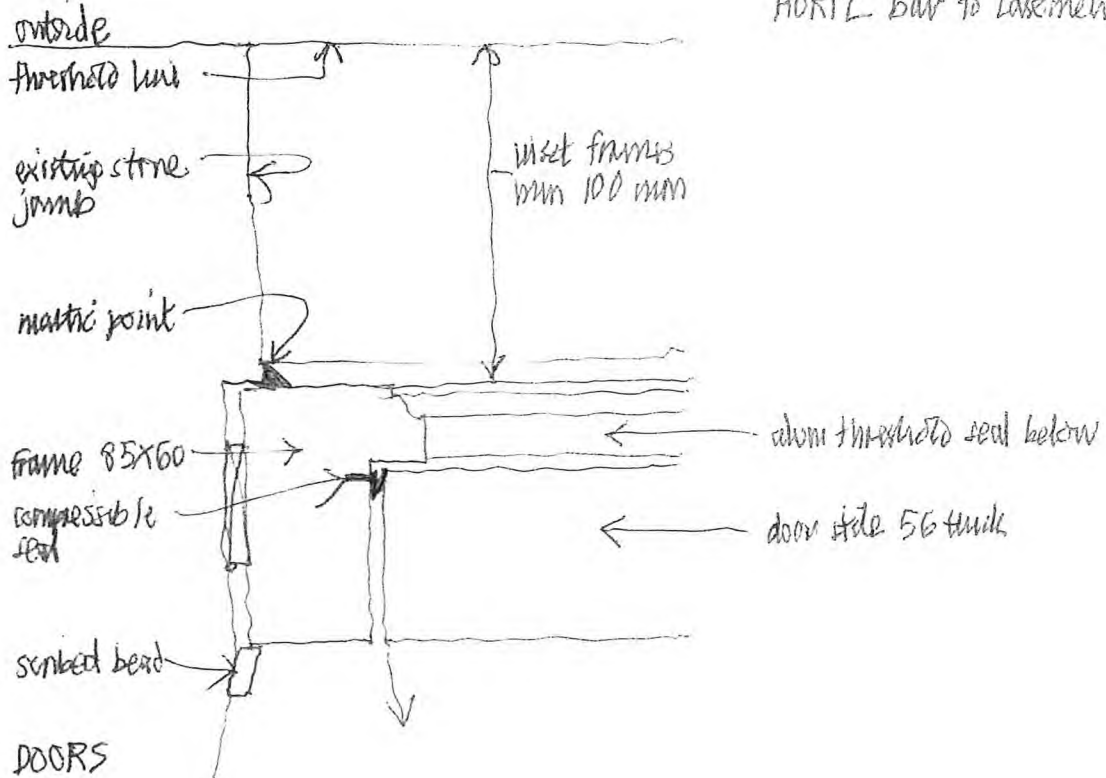 HORIZ bar to casement
outside
threshold line
existing stone
jamb
inset frames
min 100 mm
mastic point
frame 85X60
alum threshold seal below
compressible
seal
door stile 56 thick
scribed bead
DOORS